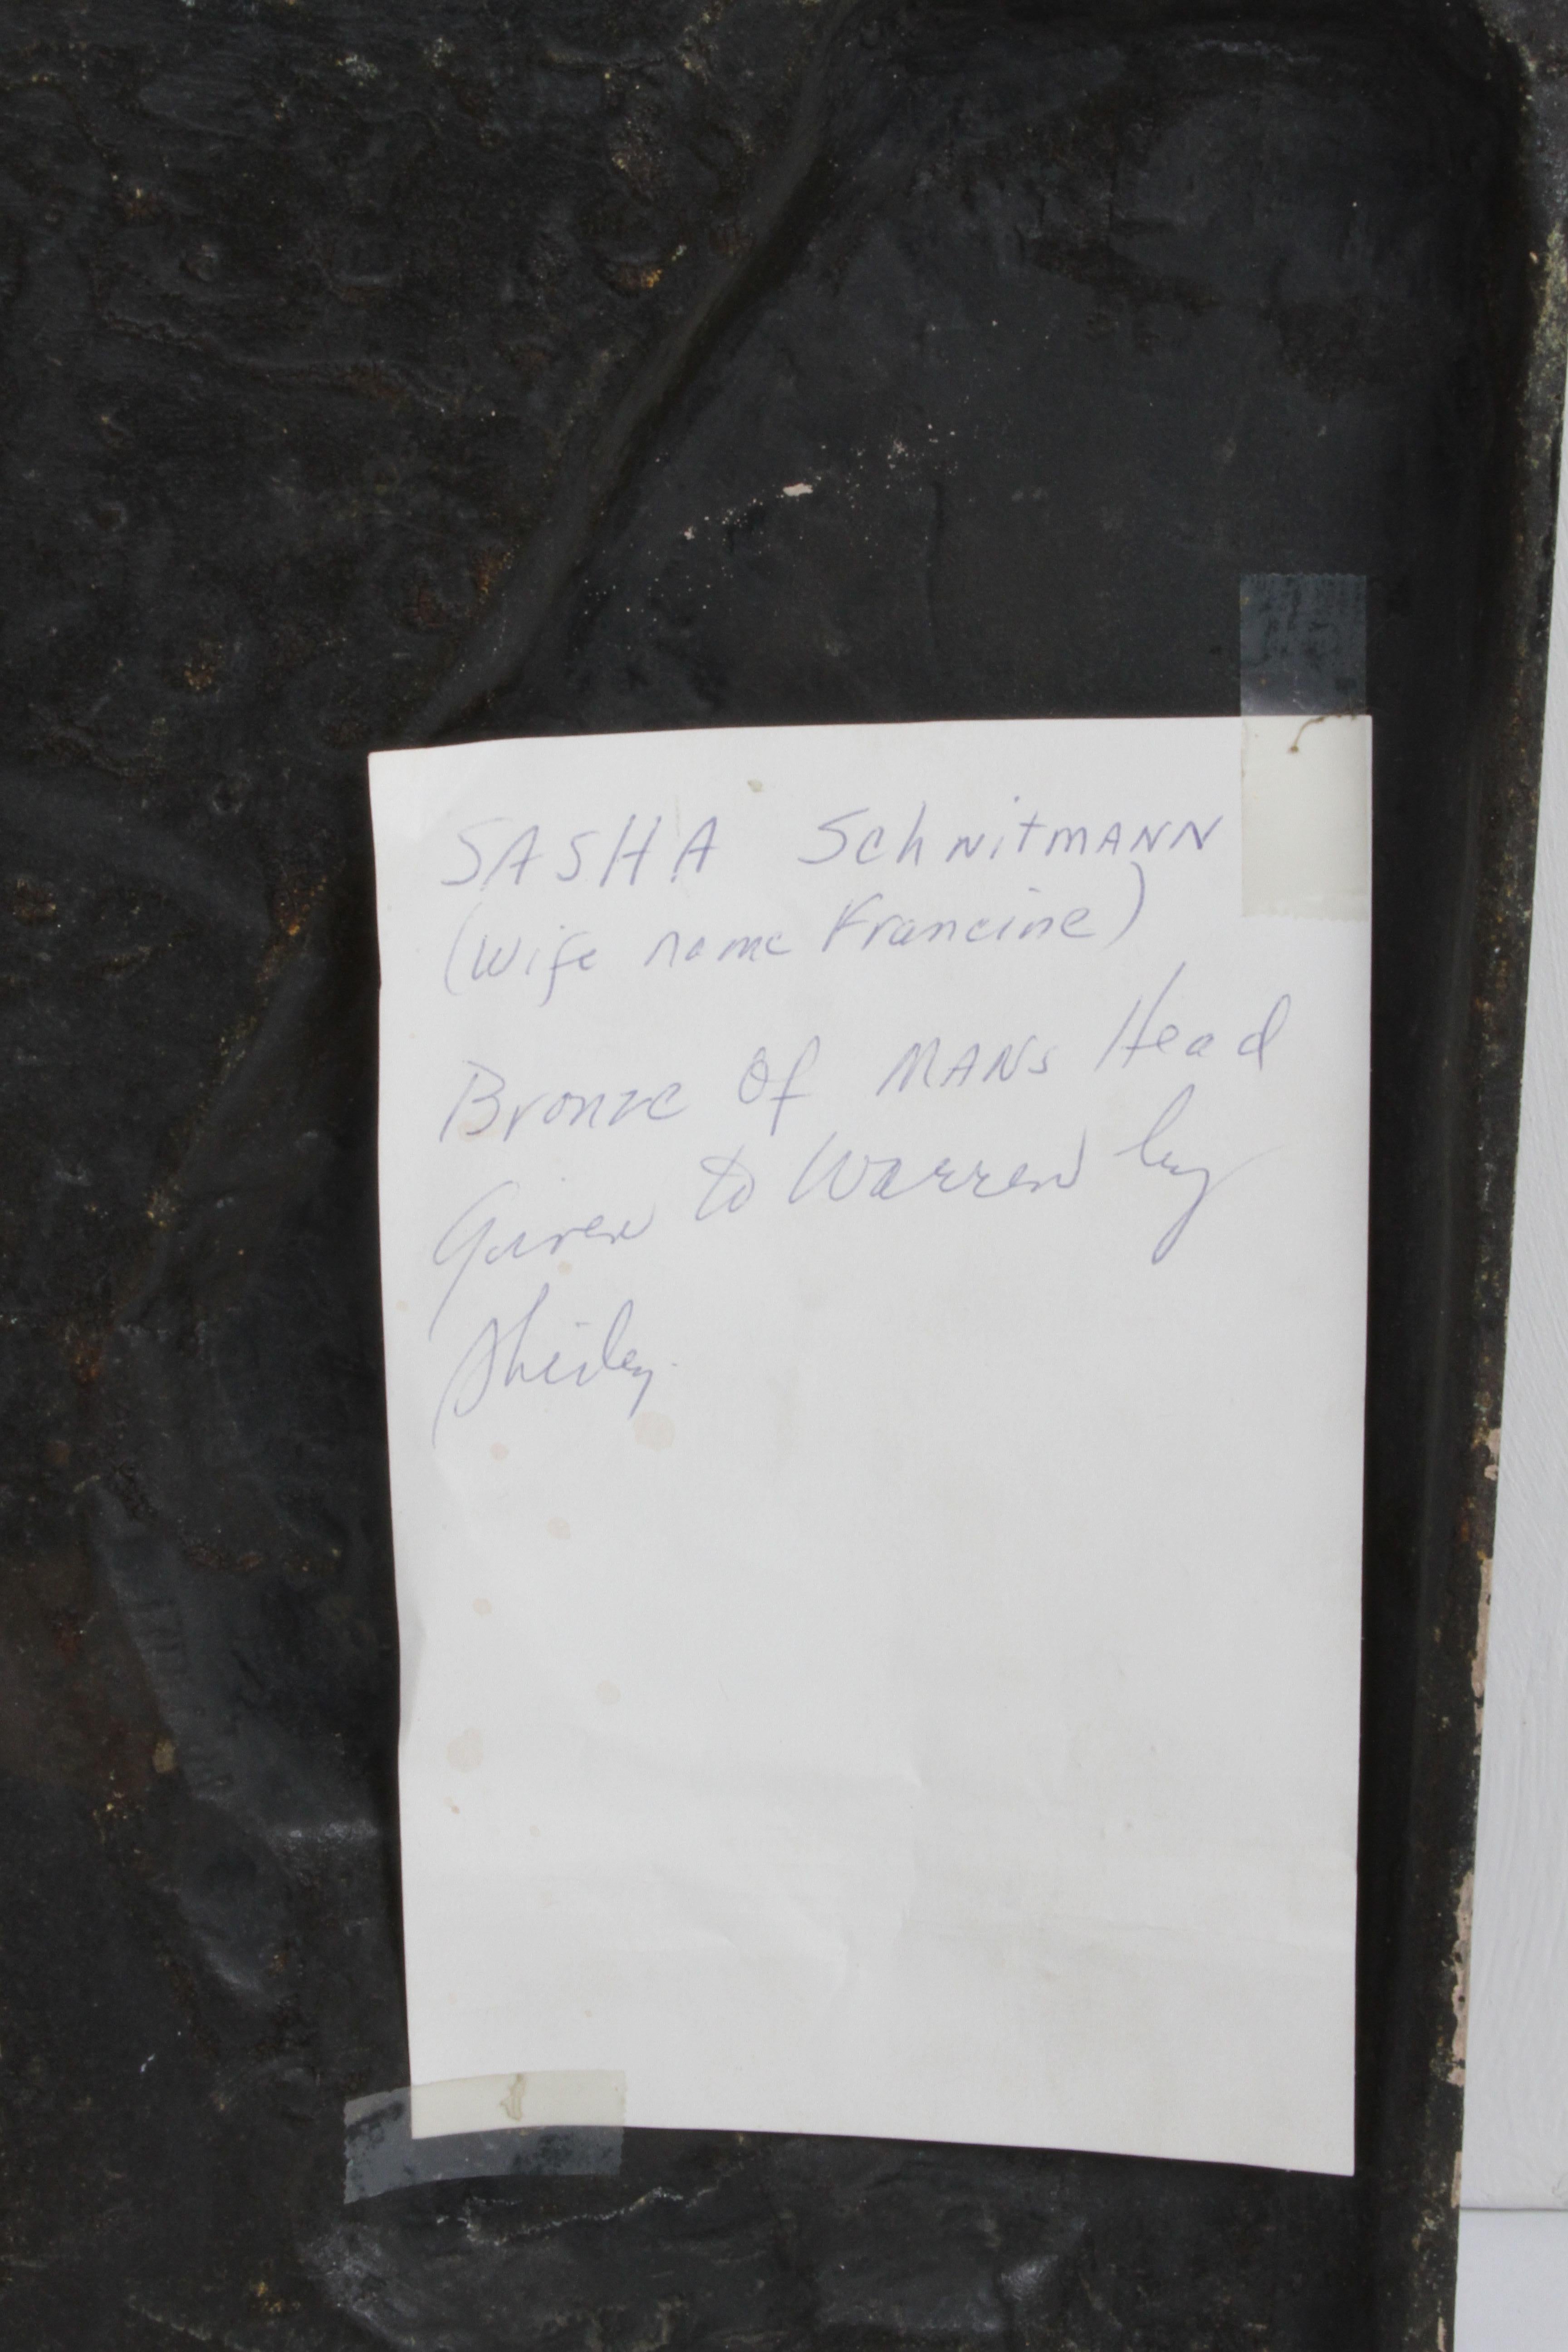 SASHA SchnitmANN
(Wife name Francine)
Bronze Of MANs Head
Given to Warren by
Shirley